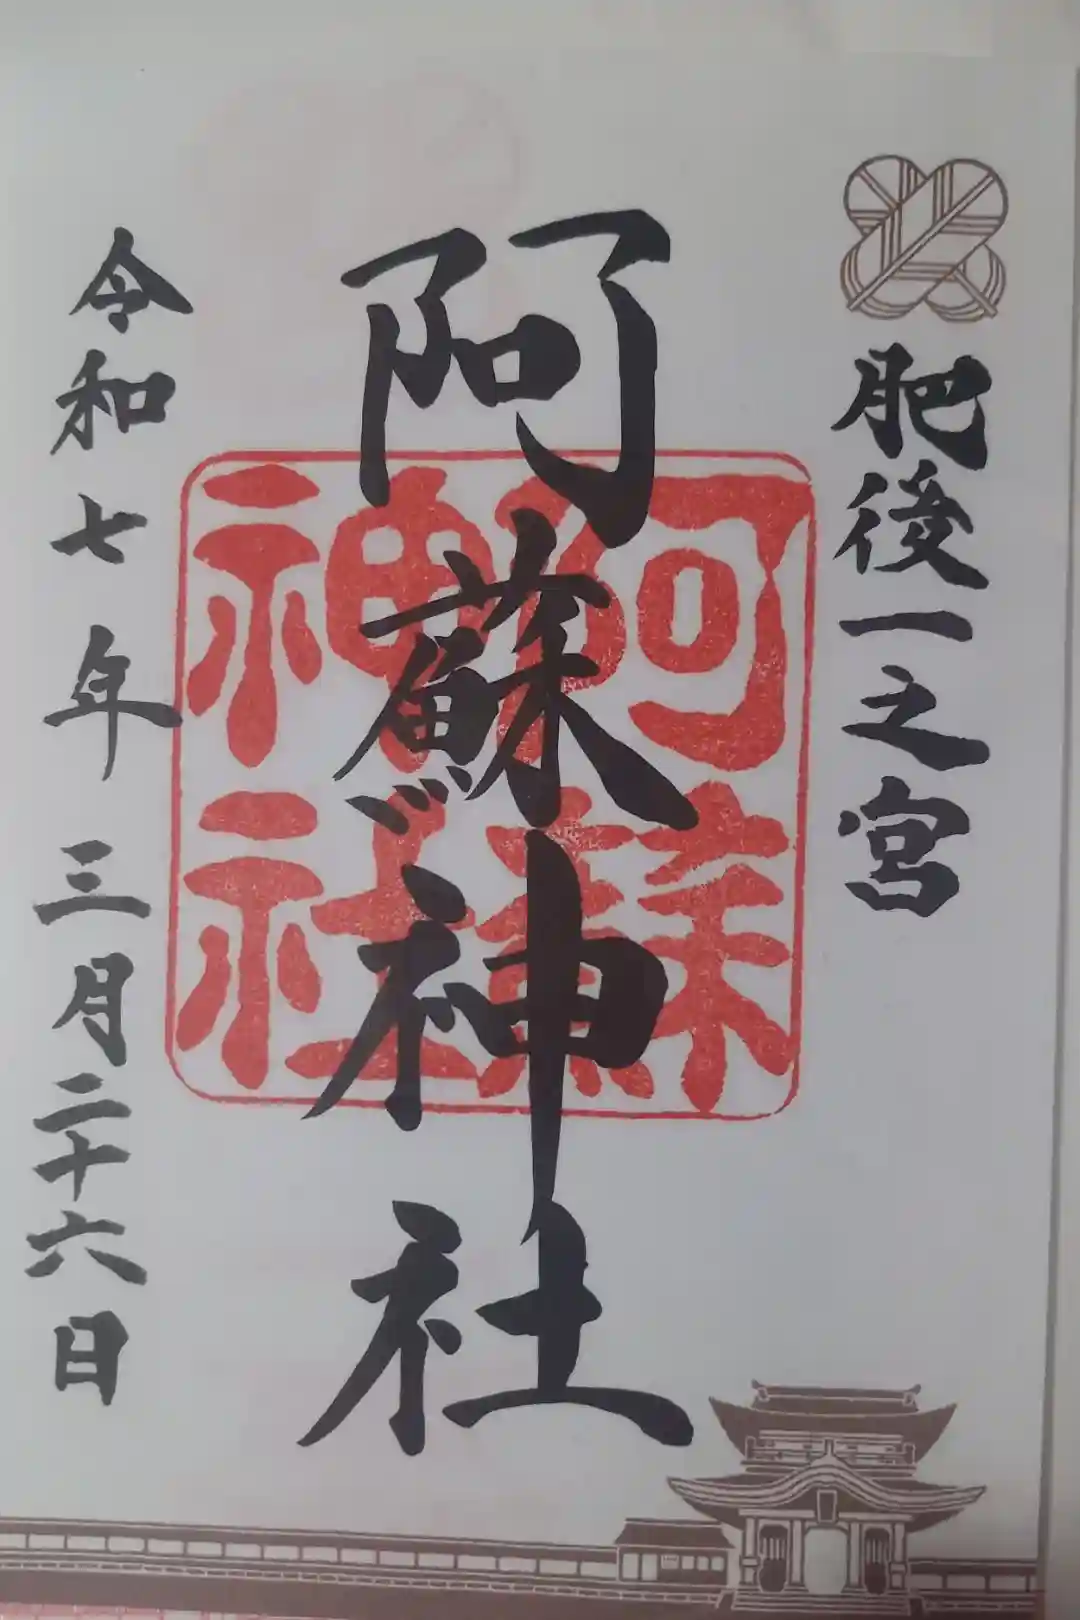 肥後一之宮
阿蘇神社
阿蘇
神社
令和七年三月二十六日